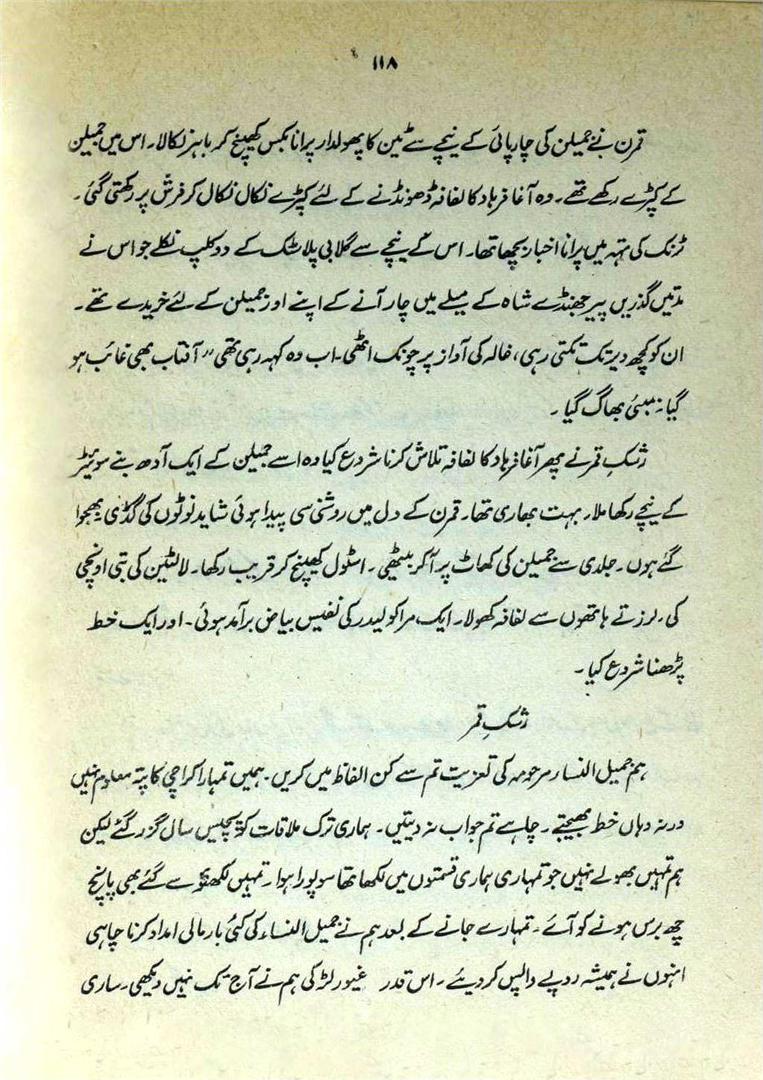 ۱۱۸
قمرن نے جمیلن کی چارپائی کے نیچے سے ٹین کا پھولدار پرانا بکس کھینچ کر باہر نکالا۔ اس میں جمیلن
کے کپڑے رکھے تھے۔ وہ آغا فرہاد کا لفافہ ڈھونڈنے کے لئے کپڑے نکال نکال کر فرش پر رکھتی گئی۔
ٹرنک کی تہہ میں پرانا اخبار بچھا تھا۔ اس کے نیچے سے گلابی پلاسٹک کے دو کلپ نکلے جو اس نے
مدتیں گذریں پیر جھنڈے شاہ کے میلے میں چار آنے کے اپنے اور جمیلن کے لئے خریدے تھے۔
ان کو کچھ دیر تک تکتی رہی، خالہ کی آواز پر چونک اٹھی۔ اب وہ کہہ رہی تھی "آفتاب بھی غائب ہو
گیا۔ بمبئی بھاگ گیا۔
رشکِ قمر نے پھر آغا فرہاد کا لفافہ تلاش کرنا شروع کیا وہ اسے جمیلن کے ایک آدھ بنے سوئیٹر
کے نیچے رکھا ملا۔ بہت بھاری تھا۔ قمرن کے دل میں روشنی سی پیدا ہوئی شاید نوٹوں کی گڈی بھجوا
گئے ہوں۔ جلدی سے جمیلن کی کھاٹ پر آ کر بیٹھی۔ اسٹول کھینچ کر قریب رکھا۔ لالٹین کی بتی اونچی
کی۔ لرزتے ہاتھوں سے لفافہ کھولا۔ ایک مراکو لیدر کی نفیس بیاض برآمد ہوئی۔ اور ایک خط
پڑھنا شروع کیا۔
رشکِ قمر
ہم جمیل النساء مرحومہ کی تعزیت تم سے کن الفاظ میں کریں۔ ہمیں تمہارا کراچی کا پتہ معلوم نہیں
ورنہ وہاں خط بھیجتے۔ چاہے تم جواب نہ دیتیں۔ ہماری ترک ملاقات کو پچیس سال گزر گئے لیکن
ہم تمہیں بھولے نہیں جو تمہاری ہماری قسمتوں میں لکھا تھا سو پورا ہوا۔ تمہیں لکھنؤ سے گئے بھی پانچ
چھ برس ہونے کو آئے۔ تمہارے جانے کے بعد ہم نے جمیل النساء کی کئی بار مالی امداد کرنا چاہی
انہوں نے ہمیشہ روپے واپس کر دیئے۔ اس قدر غیور لڑکی ہم نے آج تک نہیں دیکھی۔ ساری